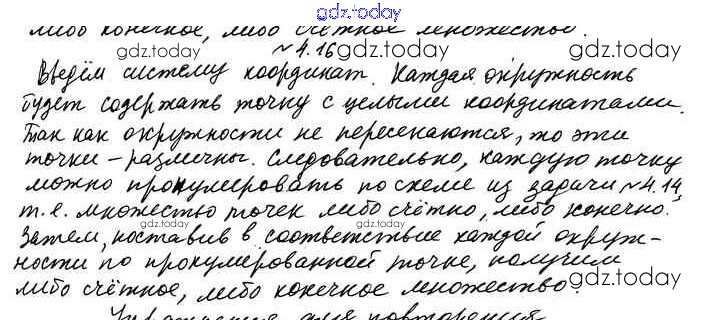 gdz.today
либо конечное, либо счётное множество.
gdz.today gdz.today
№ 4.16
Введём систему координат. Каждая окружность
будет содержать точку с целыми координатами.
gdz.today gdz.today
Так как окружности не пересекаются, то эти
точки – различны. Следовательно, каждую точку
можно пронумеровать по схеме из задачи № 4.14,
gdz.today gdz.today
т. е. множество точек либо счётно, либо конечно.
gdz.today
Затем, поставив в соответствие каждой окруж-
ности по пронумерованной точке, получим
gdz.today
либо счётное, либо конечное множество.
gdz.today
Упражнения для повторения